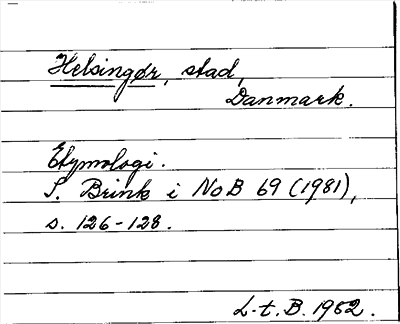 Helsingør, stad,
Danmark.
Etymologi.
S. Brink i NoB 69 (1981),
s. 126-128.
L.t.B. 1982.